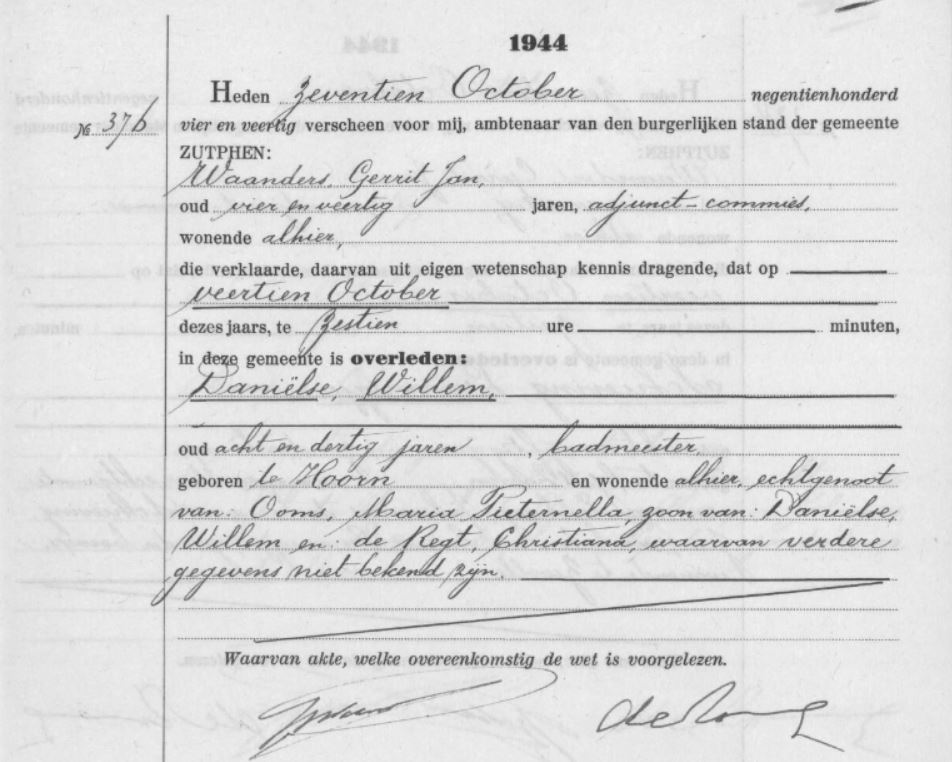 1944
Heden zeventien October negentienhonderd
№ 376 vier en veertig verscheen voor mij, ambtenaar van den burgerlijken stand der gemeente
ZUTPHEN:
Waanders, Gerrit Jan,
oud vier en veertig jaren, adjunct-commies,
wonende alhier,
die verklaarde, daarvan uit eigen wetenschap kennis dragende, dat op
veertien October
dezes jaars, te zestien ure minuten,
in deze gemeente is overleden:
Daniëlse, Willem,
oud acht en dertig jaren, badmeester,
geboren te Hoorn en wonende alhier, echtgenoot
van: Ooms, Maria Pieternella, zoon van: Daniëlse,
Willem en: de Regt, Christiana, waarvan verdere
gegevens niet bekend zijn.
Waarvan akte, welke overeenkomstig de wet is voorgelezen.